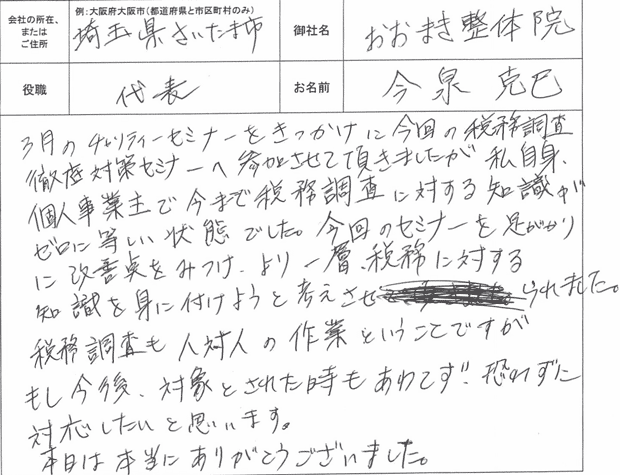 会社の所在、または ご住所
例:大阪府大阪市(都道府県と市区町村のみ)
埼玉県さいたま市
御社名
おおまき整体院
役職
代表
お名前
今泉 克巳
3月のチャリティーセミナーをきっかけに今回の税務調査
徹底対策セミナーへ参加させて頂きましたが 私自身、
個人事業主で今まで税務調査に対する知識が
ゼロに等しい状態でした。今回のセミナーを足がかり
に改善点をみつけ、より一層、税務に対する
知識を身に付けようと考えさせ られました。
税務調査も人対人の作業ということですが
もし今後、対象とされた時もあわてず、恐れずに
対応したいと思います。
本日は本当にありがとうございました。